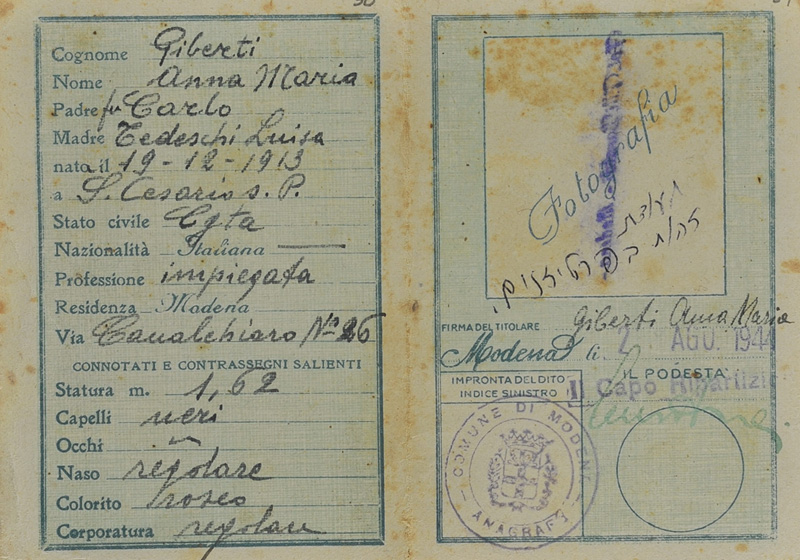 Cognome Giberti
Nome Anna Maria
Padre fu Carlo
Madre Tedeschi Luisa
nata il 19-12-1913
a S. Cesario s. P.
Stato civile Cgta
Nazionalità Italiana
Professione impiegata
Residenza Modena
Via Canalchiaro Nº 26
CONNOTATI E CONTRASSEGNI SALIENTI
Statura m. 1,62
Capelli neri
Occhi "
Naso regolare
Colorito roseo
Corporatura regolare
Fotografia
תעודת
זהות בפרטיזנים.
FIRMA DEL TITOLARE Giberti Anna Maria
Modena li 2 AGO. 1944
IMPRONTA DEL DITO
INDICE SINISTRO
IL PODESTA'
Il Capo Ripartiz
COMUNE DI MODENA
ANAGRAFE